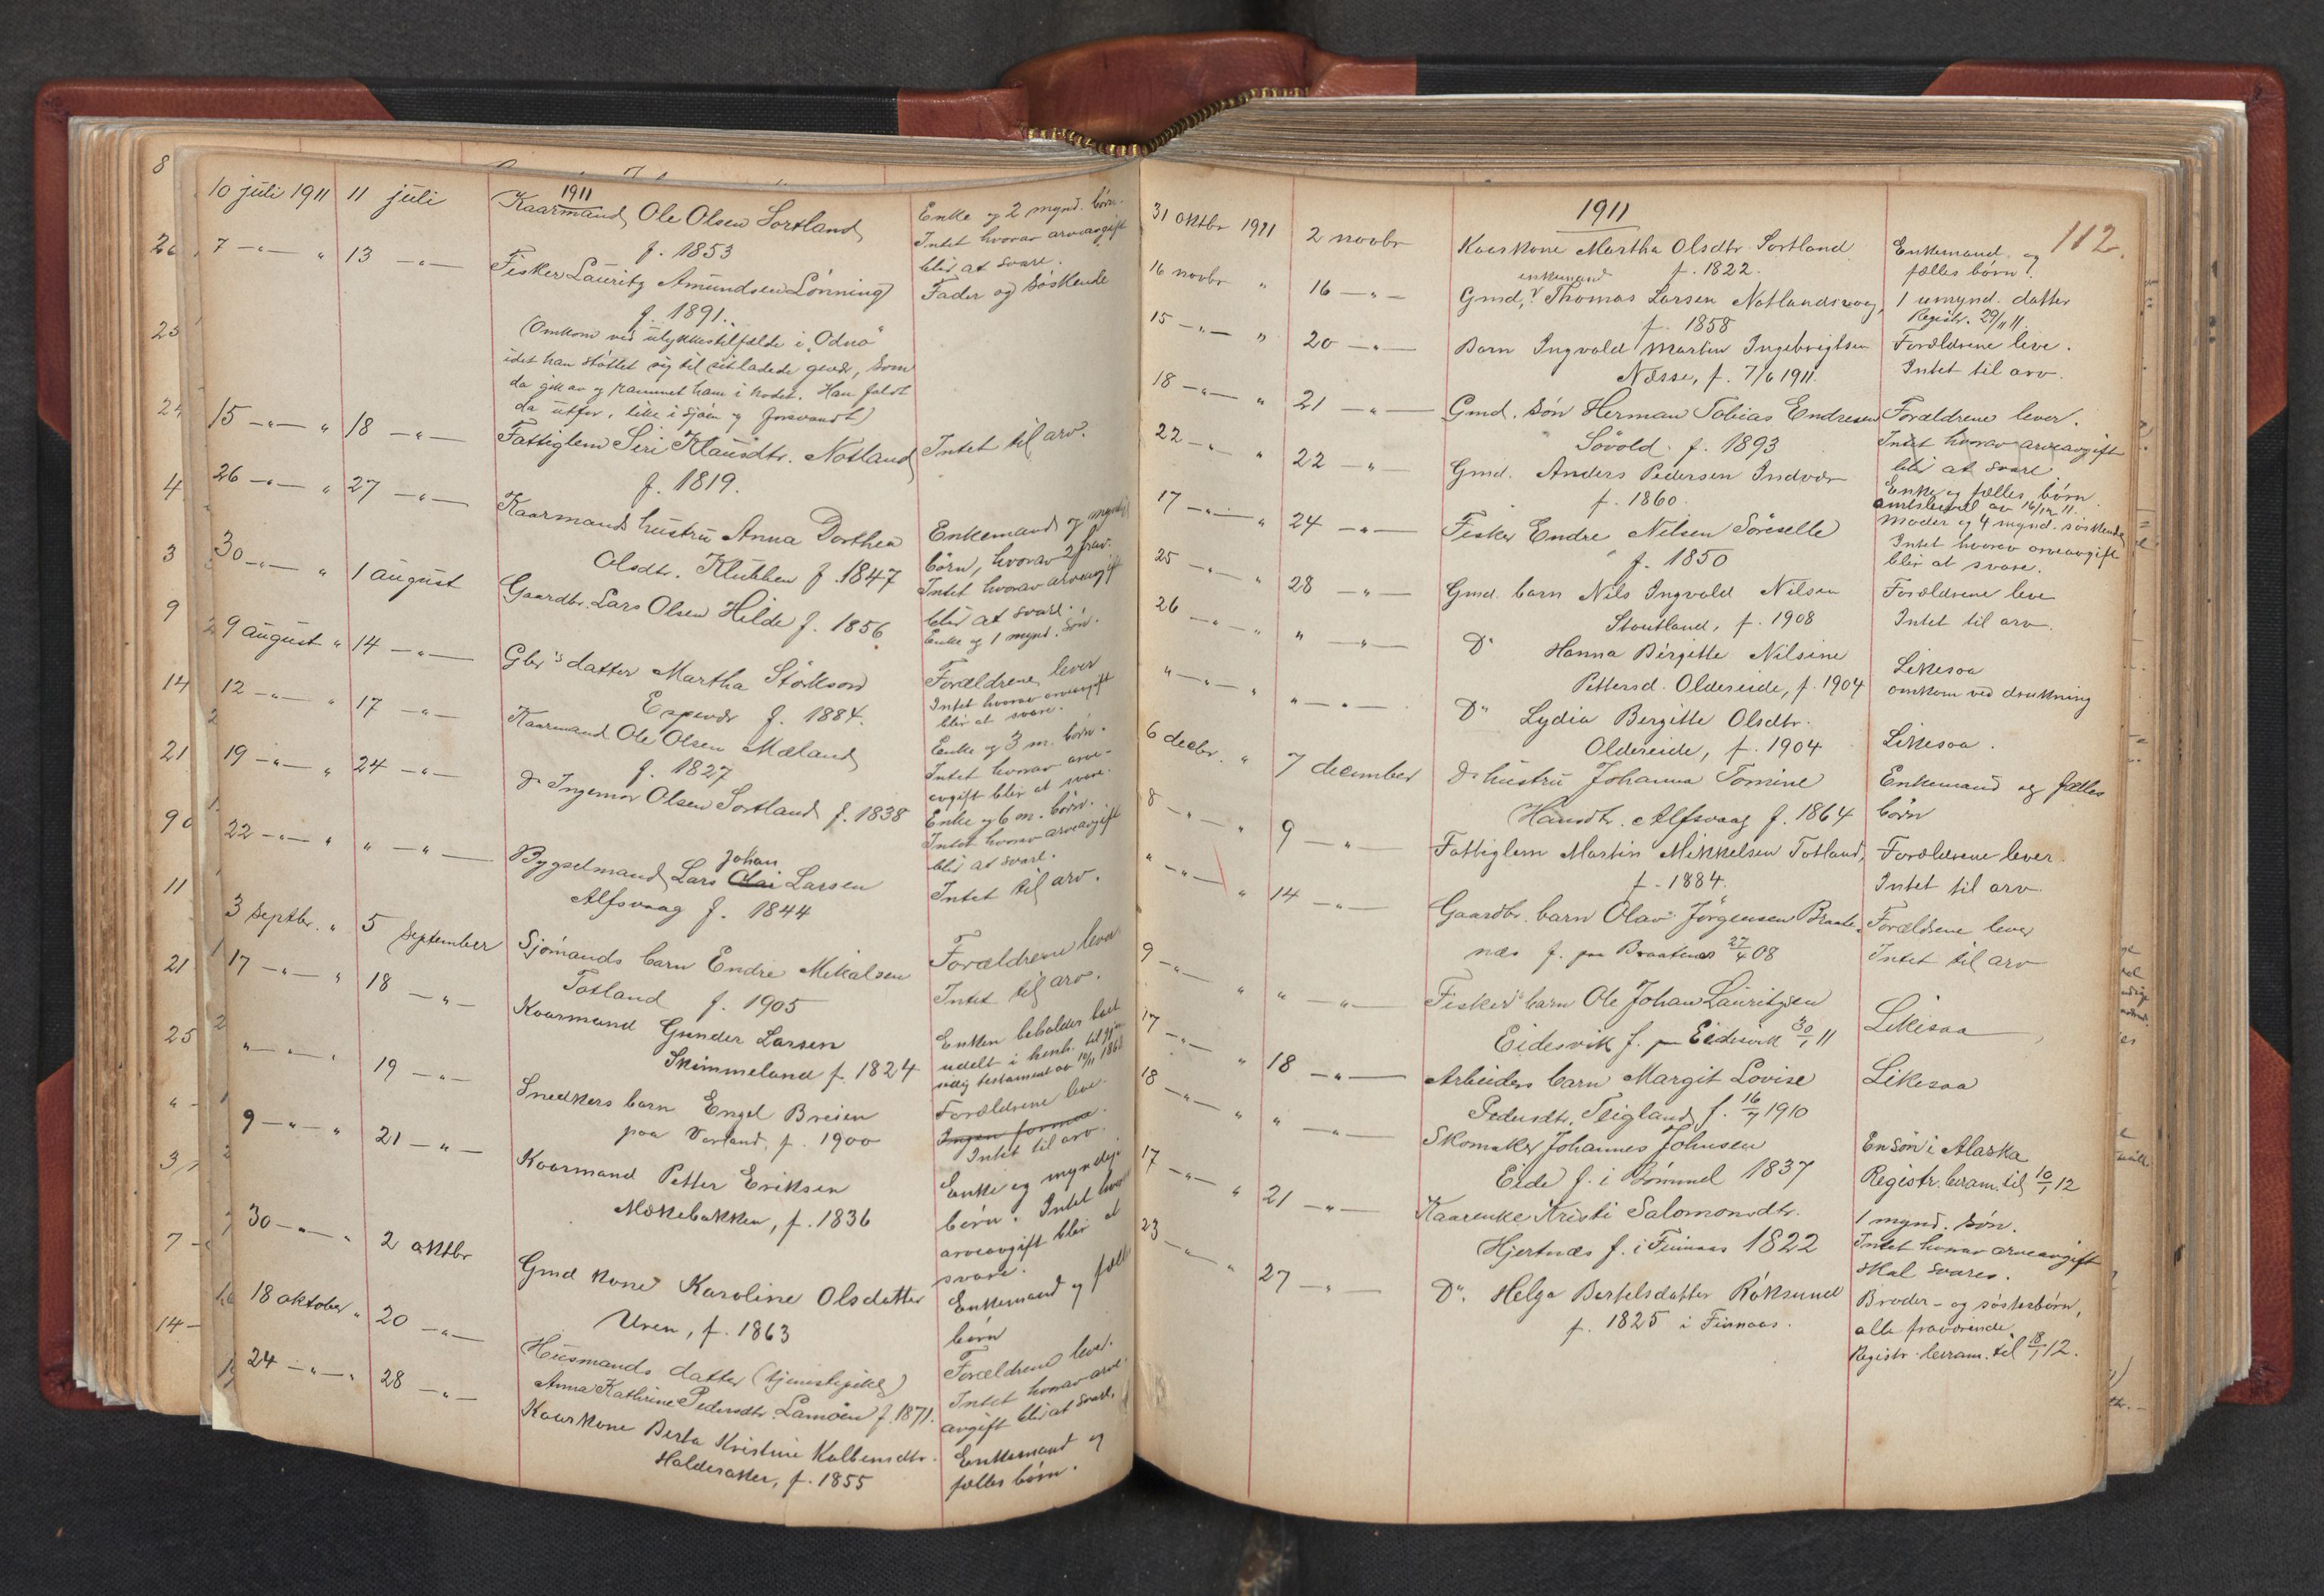 1911
10 juli 1911 11 juli Kaarmand Ole Olsen Sortland Enke og 2 mynd. børn.
f. 1853 Intet hvorav arveavgift
blir at svare.
7 —"— " 13 —"— Fisker Lauritz Amundsen Lønning Fader og søskende
f. 1891.
(Omkom ved ulykkestilfælde i "Odnø"
idet han støttet sig til sit ladede gevær, som
da gik av og rammet ham i hodet. Han faldt
da utfor, like i sjøen og forsvandt)
15 —"— " 18 —"— Fattiglem Siri Klausdtr. Notland Intet til arv.
f. 1819.
26 —"— " 27 —"— Kaarmands hustru Anna Dorthea Enkemand og myndige
Olsdtr. Klubben f. 1847 børn, hvorav 2 frav.
Intet hvorav arveavgift
blir at svare.
30 —"— " 1 august Gaardbr. Lars Olsen Hilde f. 1856 Enke og 1 mynd. søn.
9 august " 14 —"— Gbr's datter Martha Størkson Forældrene lever
Espevær f. 1884. Intet hvorav arveavgift
blir at svare.
12 —"— " 17 —"— Kaarmand Ole Olsen Mæland Enke og 3 m. børn.
f. 1827 Intet hvorav arve-
avgift blir at svare.
19 —"— " 24 —"— Do Ingemor Olsen Sortland f. 1838 Enke og 6 m. børn.
Intet hvorav arveavgift
blir at svare.
22 —"— " " —"— Bygselmand Lars Johan Larsen Intet til arv.
Alfsvaag f. 1844
3 septbr. " 5 september Sjømands barn Endre Mikalsen Forældrene lever
Totland f. 1905 Intet til arv.
17 —"— " 18 —"— Kaarmand Gunder Larsen Enken beholder boet
Skimmeland f. 1824 udelt i henh. til gjen-
sidig testament av
" —"— " 19 —"— Snedkers barn Engel Breien Forældrene leve.
paa Vorland, f. 1900 Ingen formue
Intet til arv.
9 —"— " 21 —"— Kaarmand Petter Eriksen Enke og myndige
Mækebakken, f. 1836 børn. Intet hvorav
arveavgift blir at
svare.
30 —"— " 2 oktbr Gmd kone Karoline Olsdatter Enkemand og fælles
Uren, f. 1863 børn
18 oktober " 20 —"— Husmands datter (tjenestepike) Forældrene lever.
Anna Kathrine Pedersdtr. Lamøen f. 1871. Intet hvorav arve-
avgift blir at svare.
24 —"— " 28 —"— Kaarkone Berta Kristine Kolbensdtr. Enkemand og
Halderaker, f. 1855 fælles børn.
1911
112.
31 oktbr 1911 2 novbr Kaarkone Martha Olsdtr Sortland Enkemand og
f. 1822. fælles børn.
16 novbr " 16 —"— Gmd, enkemand Thomas Larsen Notlandsvaag, 1 umynd. datter
f. 1858 Registr. 29/11 11.
15 —"— " 20 —"— Barn Ingvald Martin Ingebrigtsen Forældrene leve.
Næsse, f. 7/6 1911. Intet til arv.
18 —"— " 21 —"— Gmd. søn Herman Tobias Endresen Forældrene lever.
Søvold. f. 1893 Intet hvorav arveavgift
blir at svare
22 —"— " 22 —"— Gmd. Anders Pedersen Indvær Enke og fælles børn
f. 1860. av 16/12 11.
17 —"— " 24 —"— Fisker Endre Nilsen Søreselle Moder og 4 mynd. søskende
f. 1850 Intet hvorav arveavgift
blir at svare.
25 —"— " 28 —"— Gmd. barn Nils Ingvald Nilsen Forældrene leve
Stoutland, f. 1908 Intet til arv.
26 —"— " " —"— Do Hanna Birgette Nilsine Likesaa
Pettersd. Oldereide, f. 1904 omkom ved drukning
" —"— " " —"— Do Lydia Bergitte Olsdtr. Likesaa.
Oldereide, f. 1904
6 decbr. " 7 december Do hustru Johanna Tomine Enkemand og fælles
Hansdtr. Alfsvaag f. 1864 børn
8 —"— " 9 —"— Fattiglem Martin Mikkelsen Totland, Forældrene lever.
f. 1884. Intet til arv.
" —"— " 14 —"— Gaardbr. barn Olav Jørgensen Braate- Forældrene lever
næs f. paa Braatenæs 27/4 08 Intet til arv
9 —"— " " —"— Fisker's barn Ole Johan Lauritzsen Likesaa
Eidesvik f. paa Eidesvik 30/1 11
17 —"— " 18 —"— Arbeiders barn Margit Lovise Likesaa
Pedersdtr. Teigland f. 16/7 1910
18 —"— " " —"— Skomaker Johannes Johnsen En søn i Alaska
Eide f. i Bømmel 1837 Registr. beram. til 10/1 12
17 —"— " 21 —"— Kaarenke Kristi Salomonsdtr. 1 mynd. søn.
Hjertnæs f. i Finnaas 1822 Intet hvorav arveavgift
skal svares.
23 —"— " 27 —"— Do. Helga Bertelsdatter Røksund Broder- og søsterbørn,
f. 1825 i Finnaas. alle fraværende.
Registr. beram. til 18/1 12.